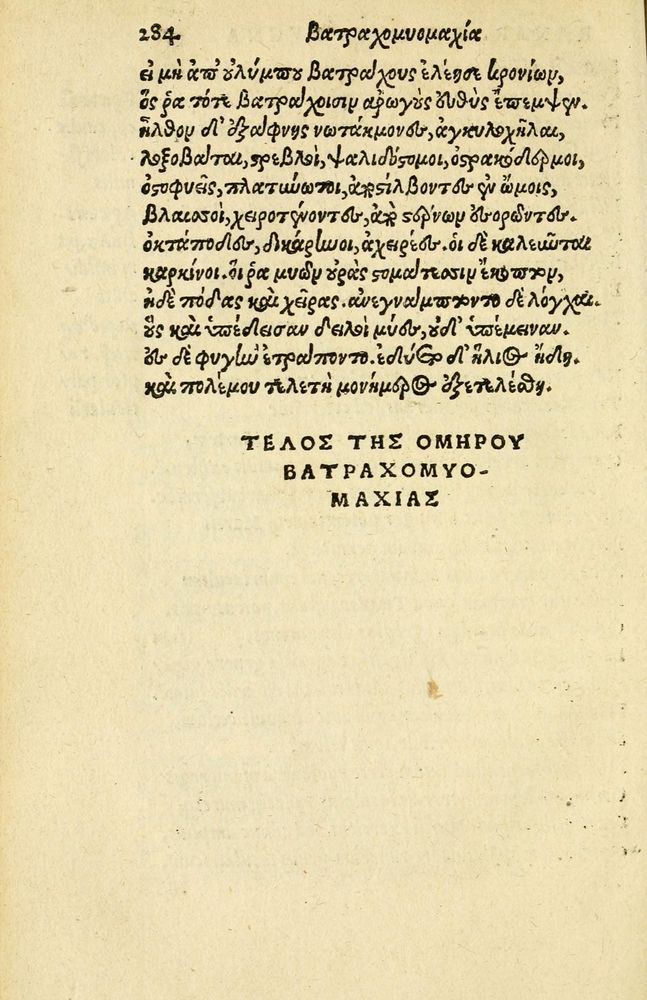 284 Βατραχομυομαχία
εἰ μὴ ἀπ' οὐλύμπου βατράχους ἐλέησε κρονίων,
ὅς ῥα τότε βατράχοισιν ἀρωγοὺς εὐθὺς ἔπεμψεν.
ἦλθον δ' ἐξαίφνης νωτάκμονες, ἀγκυλοχῆλαι,
λοξοβάται, στρεβλοὶ, ψαλιδόστομοι, ὀστρακόδερμοι,
ὀστοφυεῖς, πλατύνωτοι, ἀποστίλβοντες ἐν ὤμοις,
βλαισοὶ, χειροτένοντες, ἀπὸ στέρνων ἐσορῶντες.
ὀκτάποδες, δικάρηνοι, ἀχειρέες. οἱ δὲ καλεῦνται
καρκίνοι. οἵ ῥα μυῶν οὐρὰς στομάτεσσιν ἔκοπτον,
ἠδὲ πόδας καὶ χεῖρας. ἀνεγνάμπτοντο δὲ λόγχαι.
οὓς καὶ ὑπέδεισαν δειλοὶ μύες, οὐδ' ὑπέμειναν.
ἐς δὲ φυγὴν ἐτράποντο. ἐδύετο δ' ἥλιος ἤδη.
καὶ πολέμου τελετὴ μονήμερος ἐξετελέσθη.
ΤΕΛΟΣ ΤΗΣ ΟΜΗΡΟΥ
ΒΑΤΡΑΧΟΜΥΟ-
ΜΑΧΙΑΣ